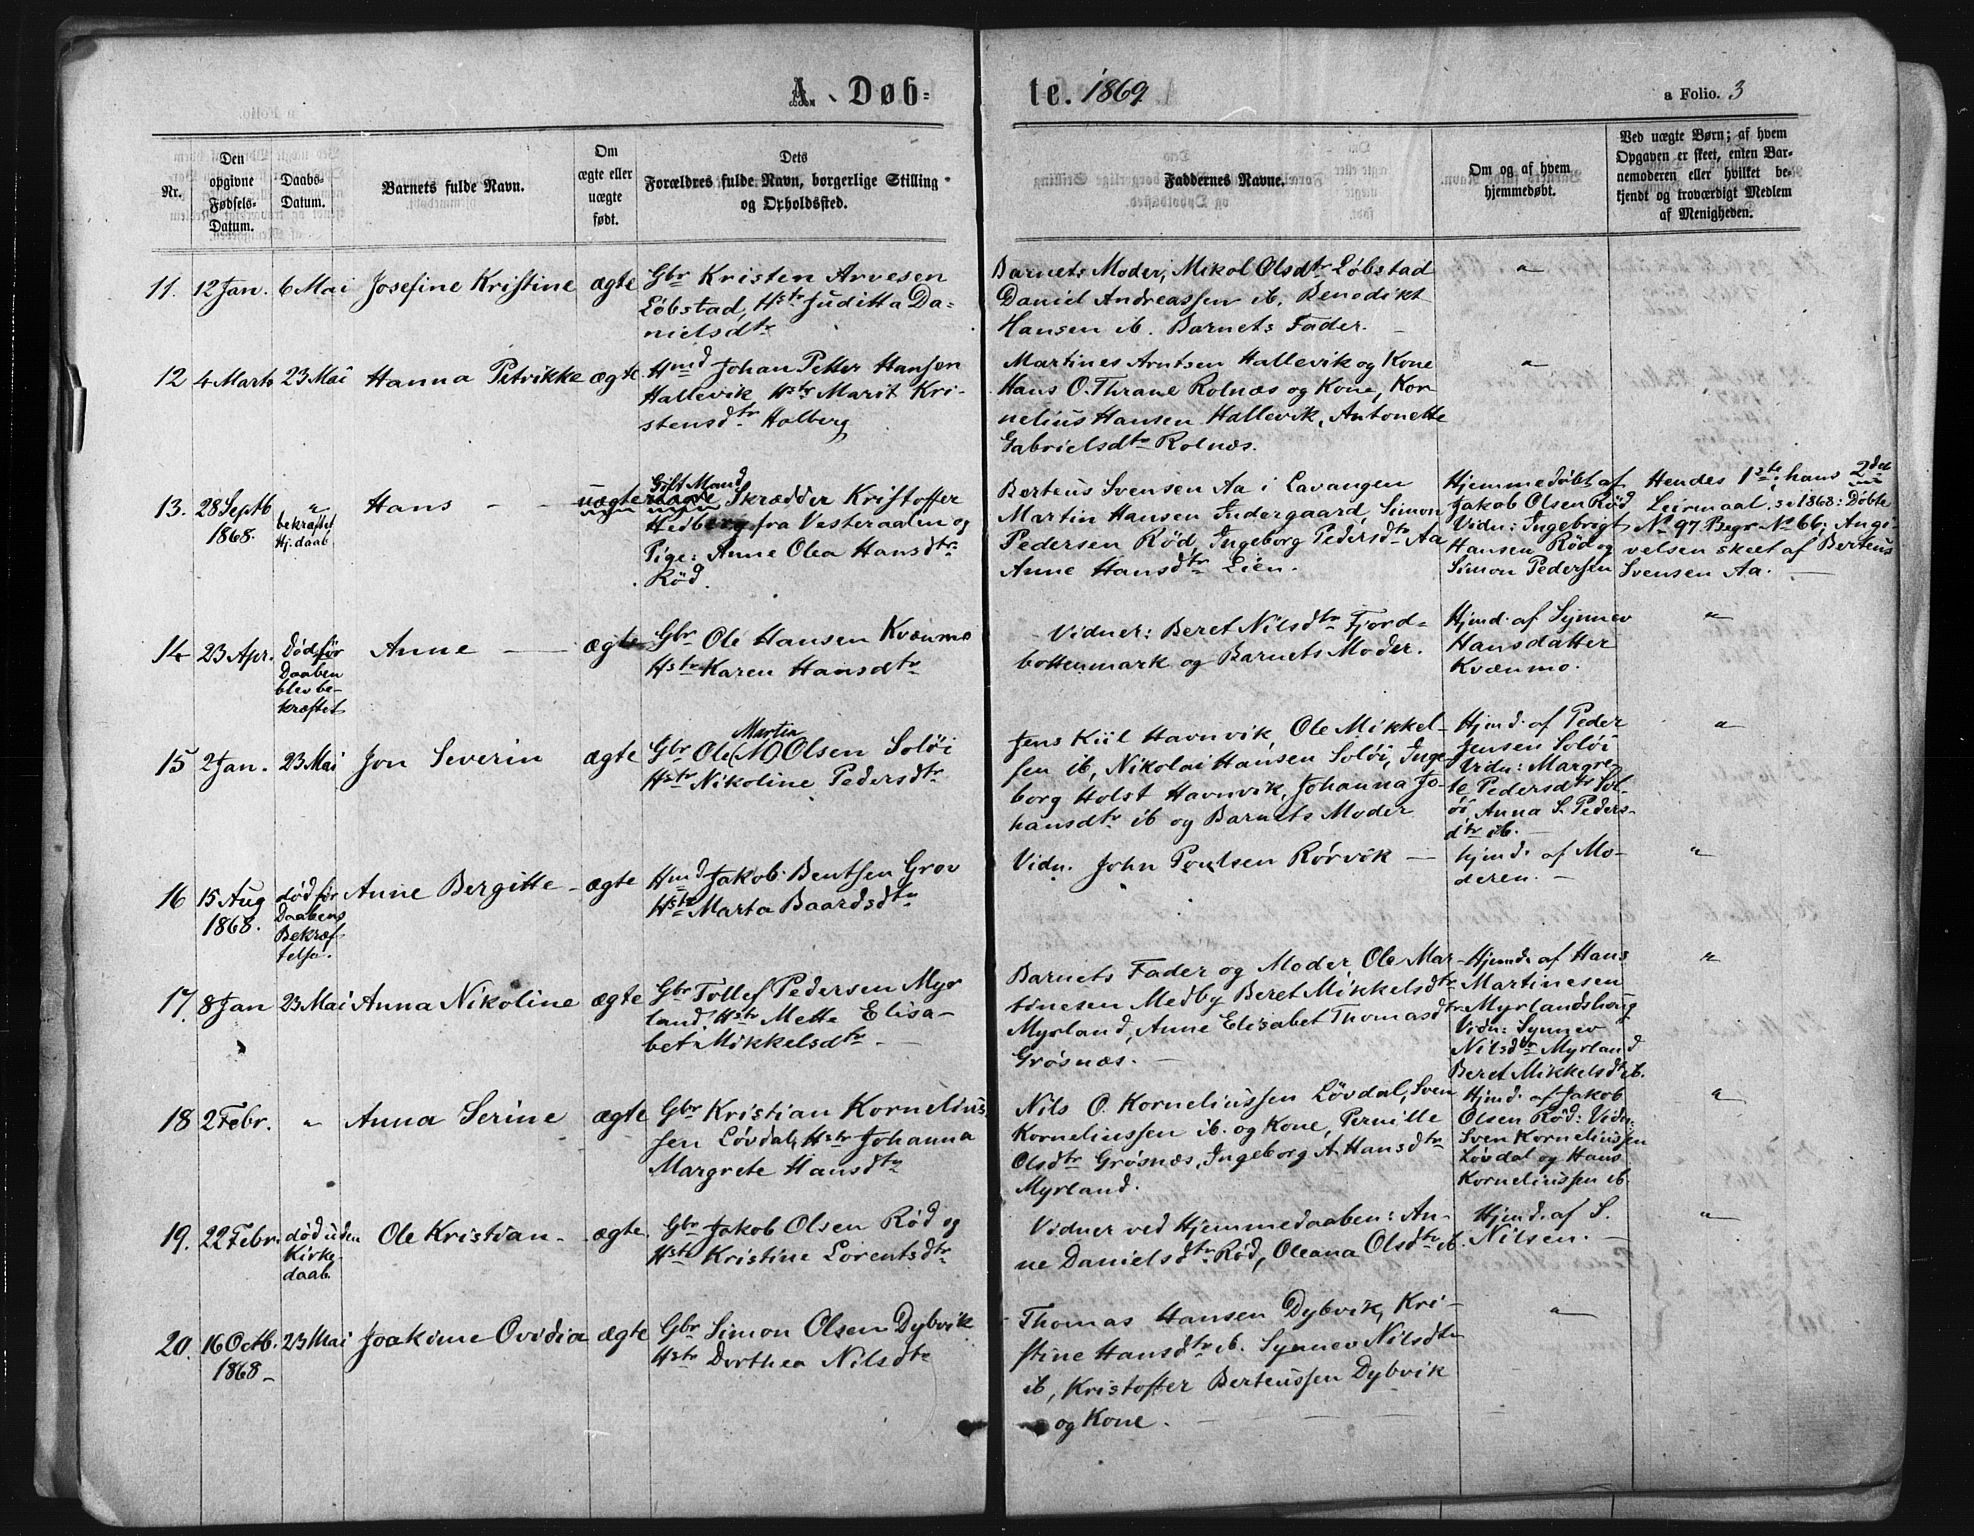 A. Døb- te. 1869 a Folio. 3
Nr.
Den opgivne Fødsels-Datum.
Daabs-Datum.
Barnets fulde Navn.
Om ægte eller uægte født.
Dets Forældres fulde Navn, borgerlige Stilling og Opholdssted.
Faddernes Navne.
Om og af hvem hjemmedøbt.
Ved uægte Børn; af hvem Opgaven er skeet, enten Barnemoderen eller hvilket bekjendt og troværdigt Medlem af Menigheden.
11. 12 Jan. 6 Mai Josefine Kristine ægte
Gbr Kristen Arvesen
Löbstad, Hstr Juditta Da-
nielsdtr
Barnets Moder, Mikol Olsdtr Løbstad
Daniel Andreassen ib. Benedikt
Hansen ib. Barnets Fader. –
"
12 4 Marts 23 Mai Hanna Petrikke ægte
Hmd Johan Petter Hansen
Hallevik Hstr Marit Kri-
stensdtr Holberg
Martines Arntsen Hallevik og Kone
Hans O. Thrane Rolnæs og Kone, Kor
nelius Hansen Hallevik, Antonette
Gabrielsdtr Rolnæs.
"
13. 28 Septb 1868. " bekræftet Hj.daab Hans – – uægte
Gift Mand
Skrædder Kristoffer
Hedberg fra Vesteraalen og
Pige: Anne Olea Hansdtr
Röd.
Berteus Svensen Aa i Lavangen
Martin Hansen Indergaard, Simon
Pedersen Rød, Ingeborg Pedersdtr Aa
Anne Hansdtr Lien.
Hjemmedøbt af
Jakob Olsen Rød
Vidn: Ingebrigt
Hansen Rød og
Simon Pedersen
Hendes 1ste, hans 2det
Leirmaal, se 1868: Døbte
No 97. Begr. No 66: Angi-
velsen skeet af Berteus
Svensen Aa. –
14 23 Apr. Død før Daaben blev be- kræftet Anne – ægte
Gbr Ole Hansen Kvænmo
Hstr Karen Hansdtr
Vidner: Beret Nilsdtr Fjord-
bottenmark og Barnets Moder.
Hjmd. af Synnev
Hansdatter
Kvænmo.
"
15 2 Jan. 23 Mai Jon Severin ægte
Martin
Gbr Ole (M) Olsen Soløi
Hstr Nikoline Pedersdtr
Jens Kiil Havnvik, Ole Mikkel-
sen ib, Nikolai Hansen Soløi, Inge-
borg Holst Havnvik, Johanna Jo-
hansdtr ib og Barnets Moder
Hjmd. af Peder
Jensen Soløi
Vidn: Margre-
te Pedersdtr Sol-
øi, Anna S. Peders-
dtr ib. –
"
16 15 Aug 1868. død før Daabens Bekræf- telse. Anne Bergitte – ægte
Hmd Jakob Bentsen Grov
Hstr Marta Baardsdtr
Vidn. John Poulsen Rørvik –
hjmd. af Mo-
deren. –
"
17. 8 Jan 23 Mai Anna Nikoline ægte
Gbr Tollef Pedersen Myr
land, Hstr Mette Elisa-
bet Mikkelsdtr –
Barnets Fader og Moder, Ole Mar-
tinesen Medby Beret Mikkelsdtr
Myrland, Anne Elisabet Thomasdtr
Grøsnæs. –
Hjemd. af Hans
Martinesen
Myrlandshaug
Vidn: Synnev
Nilsdtr Myrland
Beret Mikkelsdtr ib.
"
18 2 Febr. " Anna Serine ægte
Gbr Kristian Kornelius-
sen Løvdal, Hstr Johanna
Margrete Hansdtr
Nils O. Korneliussen Løvdal, Sven
Korneliussen ib. og Kone, Pernille
Olsdtr Grøsnæs, Ingeborg A Hansdtr
Myrland.
Hjmd. af Jakob
Olsen Rød: Vidn:
Sven Korneliussen
Løvdal og Hans
Korneliussen ib.
"
19. 22 Febr. død uden Kirke- daab. Ole Kristian – ægte.
Gbr Jakob Olsen Rød og
Hstr Kristine Lorentsdtr
Vidner ved Hjemmedaaben: An-
ne Danielsdtr Rød, Oleana Olsdtr ib.
Hjmd. af S.
Nilsen. –
"
20. 16 Octb. 1868 – 23 Mai Joakime Ovidia ægte
Gbr Simon Olsen Dybvik
Hstr Dorthea Nilsdtr
Thomas Hansen Dybvik, Kri-
stine Hansdtr ib. Synnev Nilsdtr
ib, Kristoffer Berteussen Dybvik
og Kone. –
"